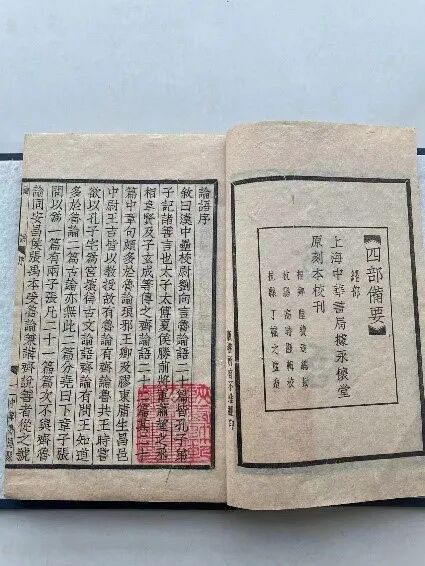 四部備要
經部
上海中華書局據永懷堂
原刻本校刊
桐鄉陸費逵總勘
杭縣高時顯輯校
杭縣丁輔之監造
版權所有不准翻印
論語序
敘曰漢中壘校尉劉向言魯論語二十篇皆孔子弟
子記諸善言也太子太傅夏侯勝前將軍蕭望之丞
相韋賢及子玄成等傳之齊論語二十二篇其二十
篇中章句頗多於魯論琅邪王卿及膠東庸生昌邑
中尉王吉皆以教授故有魯論有齊論魯共王時嘗
欲以孔子宅為宮壞得古文論語齊論有問王知道
多於魯論二篇古論亦無此二篇分堯曰下章子張
問以為一篇有兩子張凡二十一篇篇次不與齊魯
論同安昌侯張禹本受魯論兼講齊說善者從之號